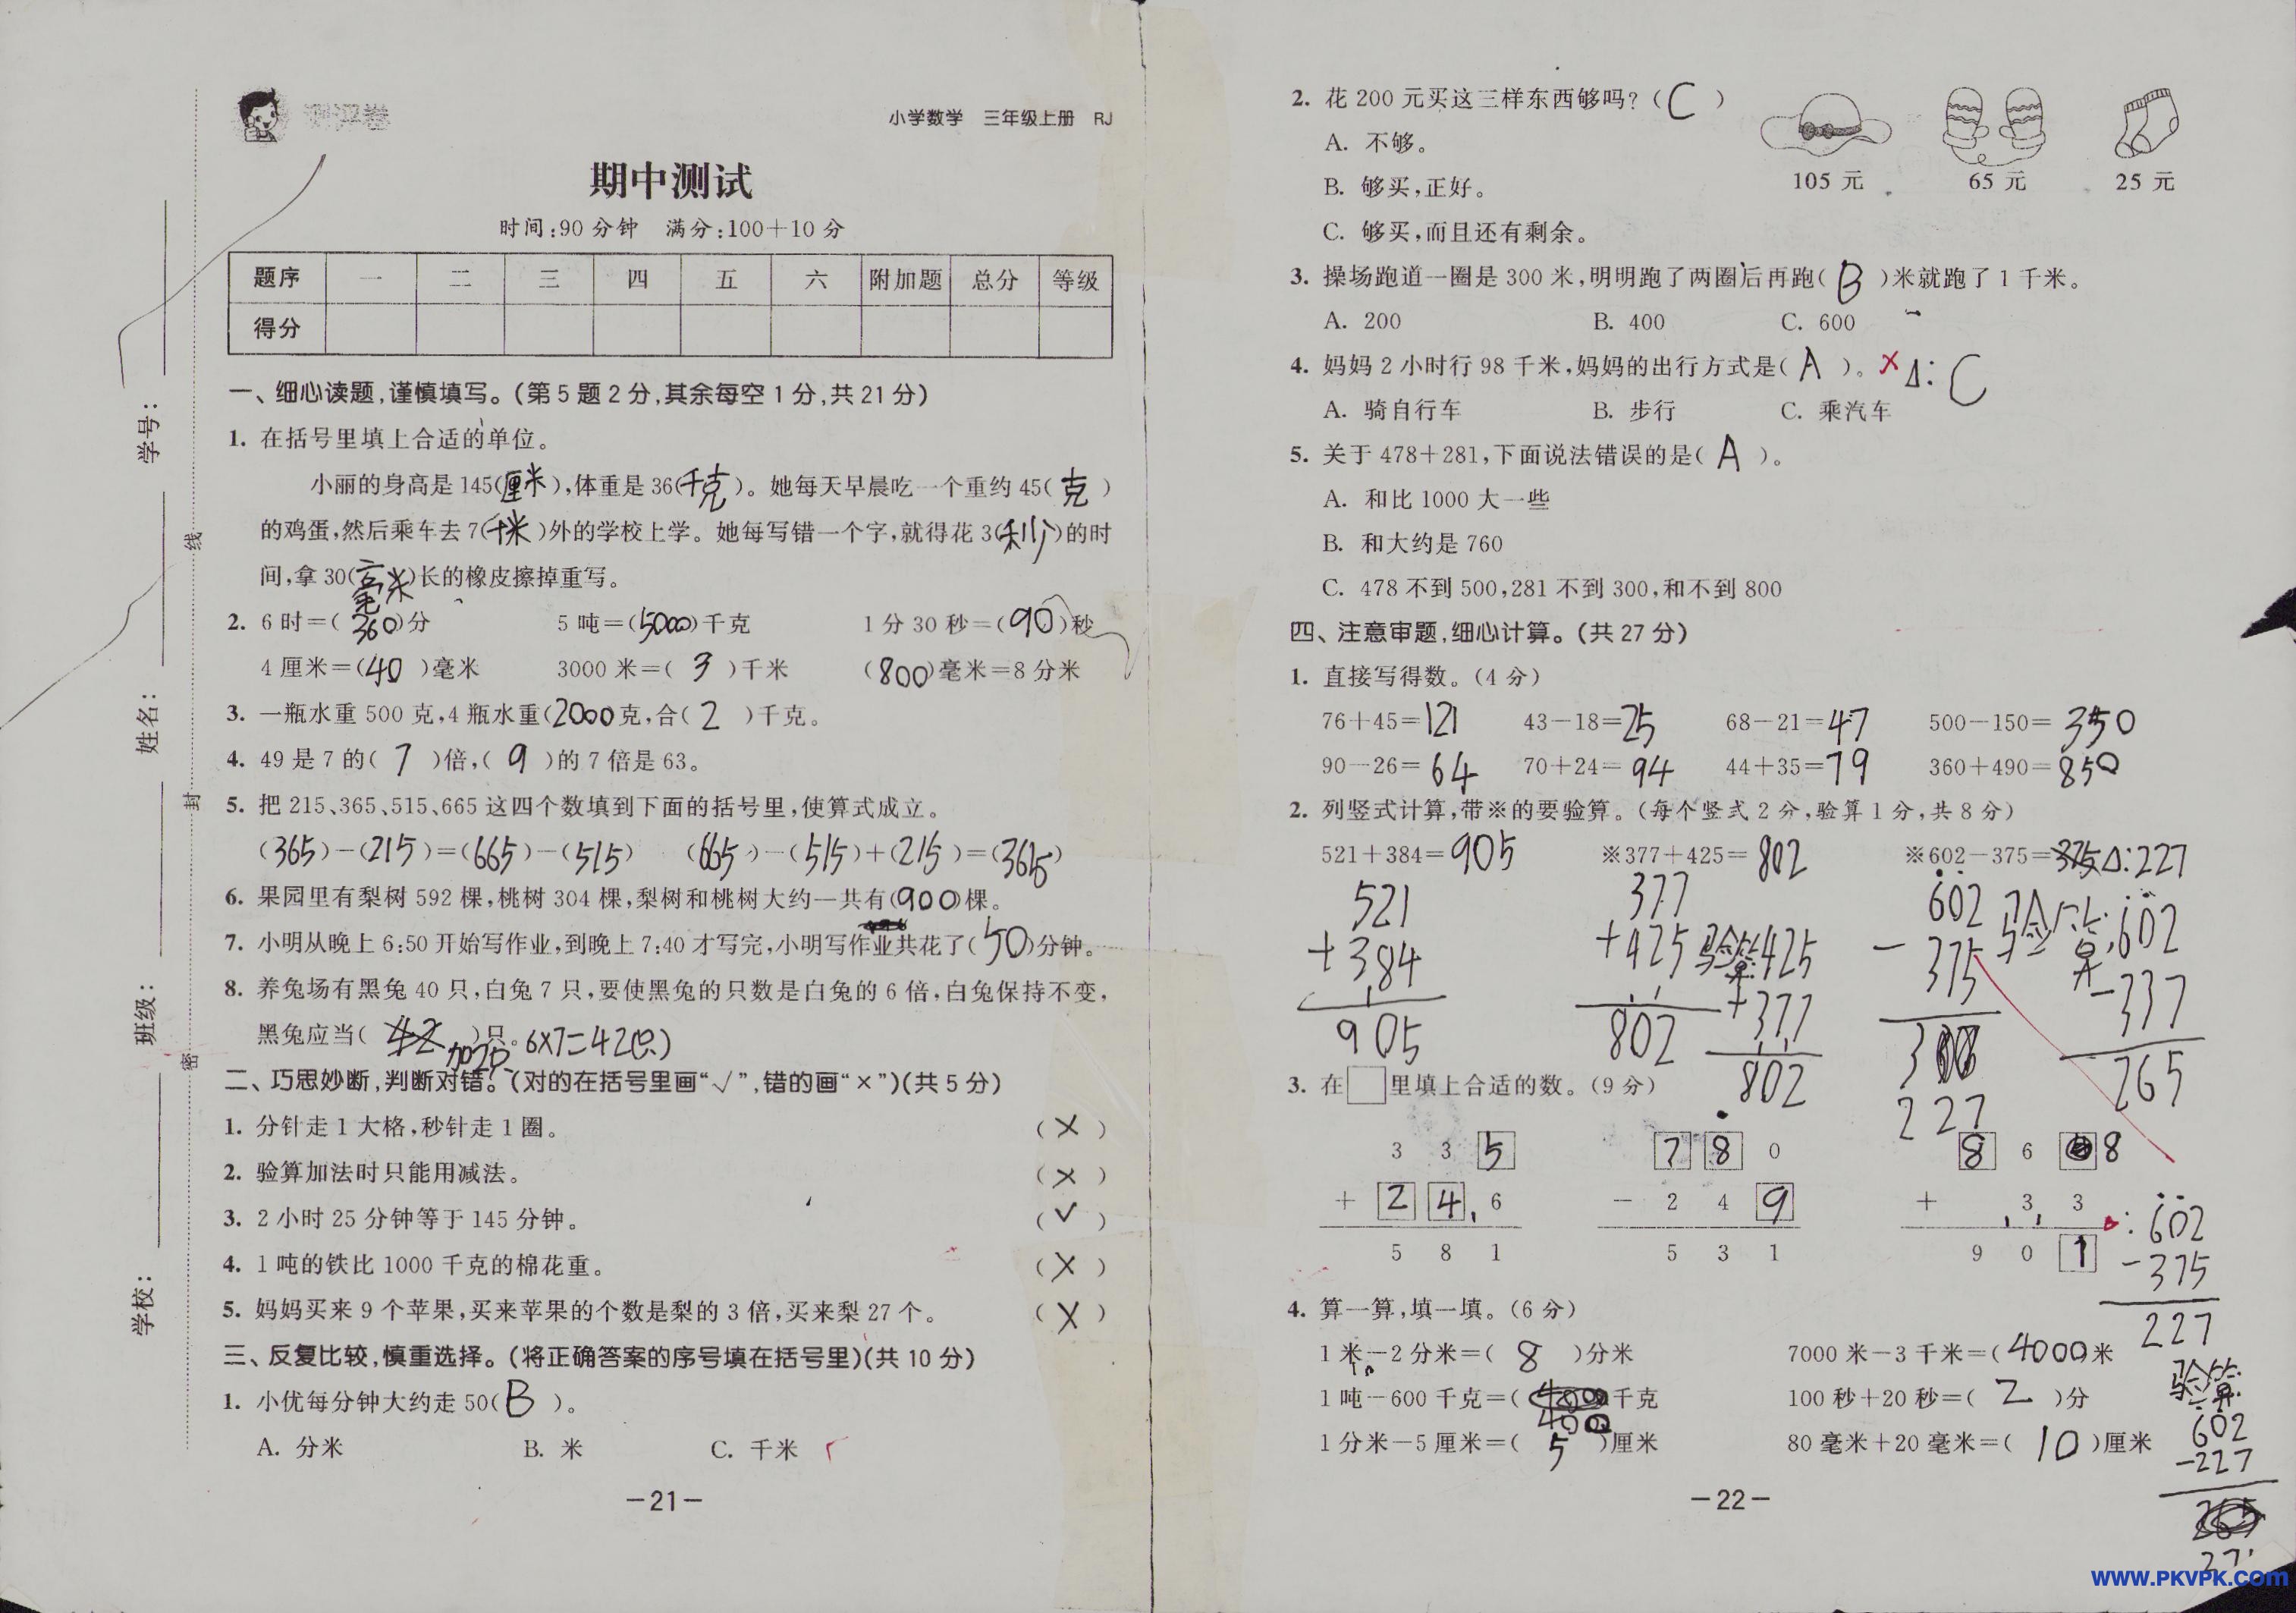 测评卷
小学数学 三年级上册 RJ
期中测试
时间:90分钟 满分:100+10分
题序 一 二 三 四 五 六 附加题 总分 等级
得分
学号:
姓名:
班级:
学校:
线
封
密
一、细心读题,谨慎填写。(第5题2分,其余每空1分,共21分)
1. 在括号里填上合适的单位。
小丽的身高是145(厘米),体重是36(千克)。她每天早晨吃一个重约45(克)
的鸡蛋,然后乘车去7(千米)外的学校上学。她每写错一个字,就得花3(秒)的时
间,拿30(毫米)长的橡皮擦掉重写。
2. 6时=(360)分 5吨=(5000)千克 1分30秒=(90)秒
4厘米=(40)毫米 3000米=(3)千米 (800)毫米=8分米
3. 一瓶水重500克,4瓶水重(2000克,合(2)千克。
4. 49是7的(7)倍,(9)的7倍是63。
5. 把215、365、515、665这四个数填到下面的括号里,使算式成立。
(365)-(215)=(665)-(515) (665)-(515)+(215)=(365)
6. 果园里有梨树592棵,桃树304棵,梨树和桃树大约一共有(900)棵。
7. 小明从晚上6:50开始写作业,到晚上7:40才写完,小明写作业共花了(50)分钟。
8. 养兔场有黑兔40只,白兔7只,要使黑兔的只数是白兔的6倍,白兔保持不变,
黑兔应当(42)只。6×7=42(只)
二、巧思妙断,判断对错。(对的在括号里画“√”,错的画“×”)(共5分)
1. 分针走1大格,秒针走1圈。 (×)
2. 验算加法时只能用减法。 (×)
3. 2小时25分钟等于145分钟。 (√)
4. 1吨的铁比1000千克的棉花重。 (×)
5. 妈妈买来9个苹果,买来苹果的个数是梨的3倍,买来梨27个。 (×)
三、反复比较,慎重选择。(将正确答案的序号填在括号里)(共10分)
1. 小优每分钟大约走50(B)。
A. 分米 B. 米 C. 千米
—21—
2. 花200元买这三样东西够吗?(C)
A. 不够。
B. 够买,正好。
C. 够买,而且还有剩余。
105元 65元 25元
3. 操场跑道一圈是300米,明明跑了两圈后再跑(B)米就跑了1千米。
A. 200 B. 400 C. 600
4. 妈妈2小时行98千米,妈妈的出行方式是(A)。× Δ: C
A. 骑自行车 B. 步行 C. 乘汽车
5. 关于478+281,下面说法错误的是(A)。
A. 和比1000大一些
B. 和大约是760
C. 478不到500,281不到300,和不到800
四、注意审题,细心计算。(共27分)
1. 直接写得数。(4分)
76+45=121 43-18=25 68-21=47 500-150=350
90-26=64 70+24=94 44+35=79 360+490=850
2. 列竖式计算,带※的要验算。(每个竖式2分,验算1分,共8分)
521+384=905 ※377+425=802 ※602-375=375Δ:227
521 377 602 验算:602
+384 +425 验算425 -375 -337
905 802 +377 265
802 227
3. 在□里填上合适的数。(9分)
3 3 5 7 8 0 8 6 8
+ 2 4 6 - 2 4 9 + 3 3
5 8 1 5 3 1 9 0 1
:602
-375
227
验算
602
-227
4. 算一算,填一填。(6分)
1米-2分米=(8)分米 7000米-3千米=(4000)米
1吨-600千克=(400)千克 100秒+20秒=(2)分
1分米-5厘米=(5)厘米 80毫米+20毫米=(10)厘米
—22—
www.PKVPK.com